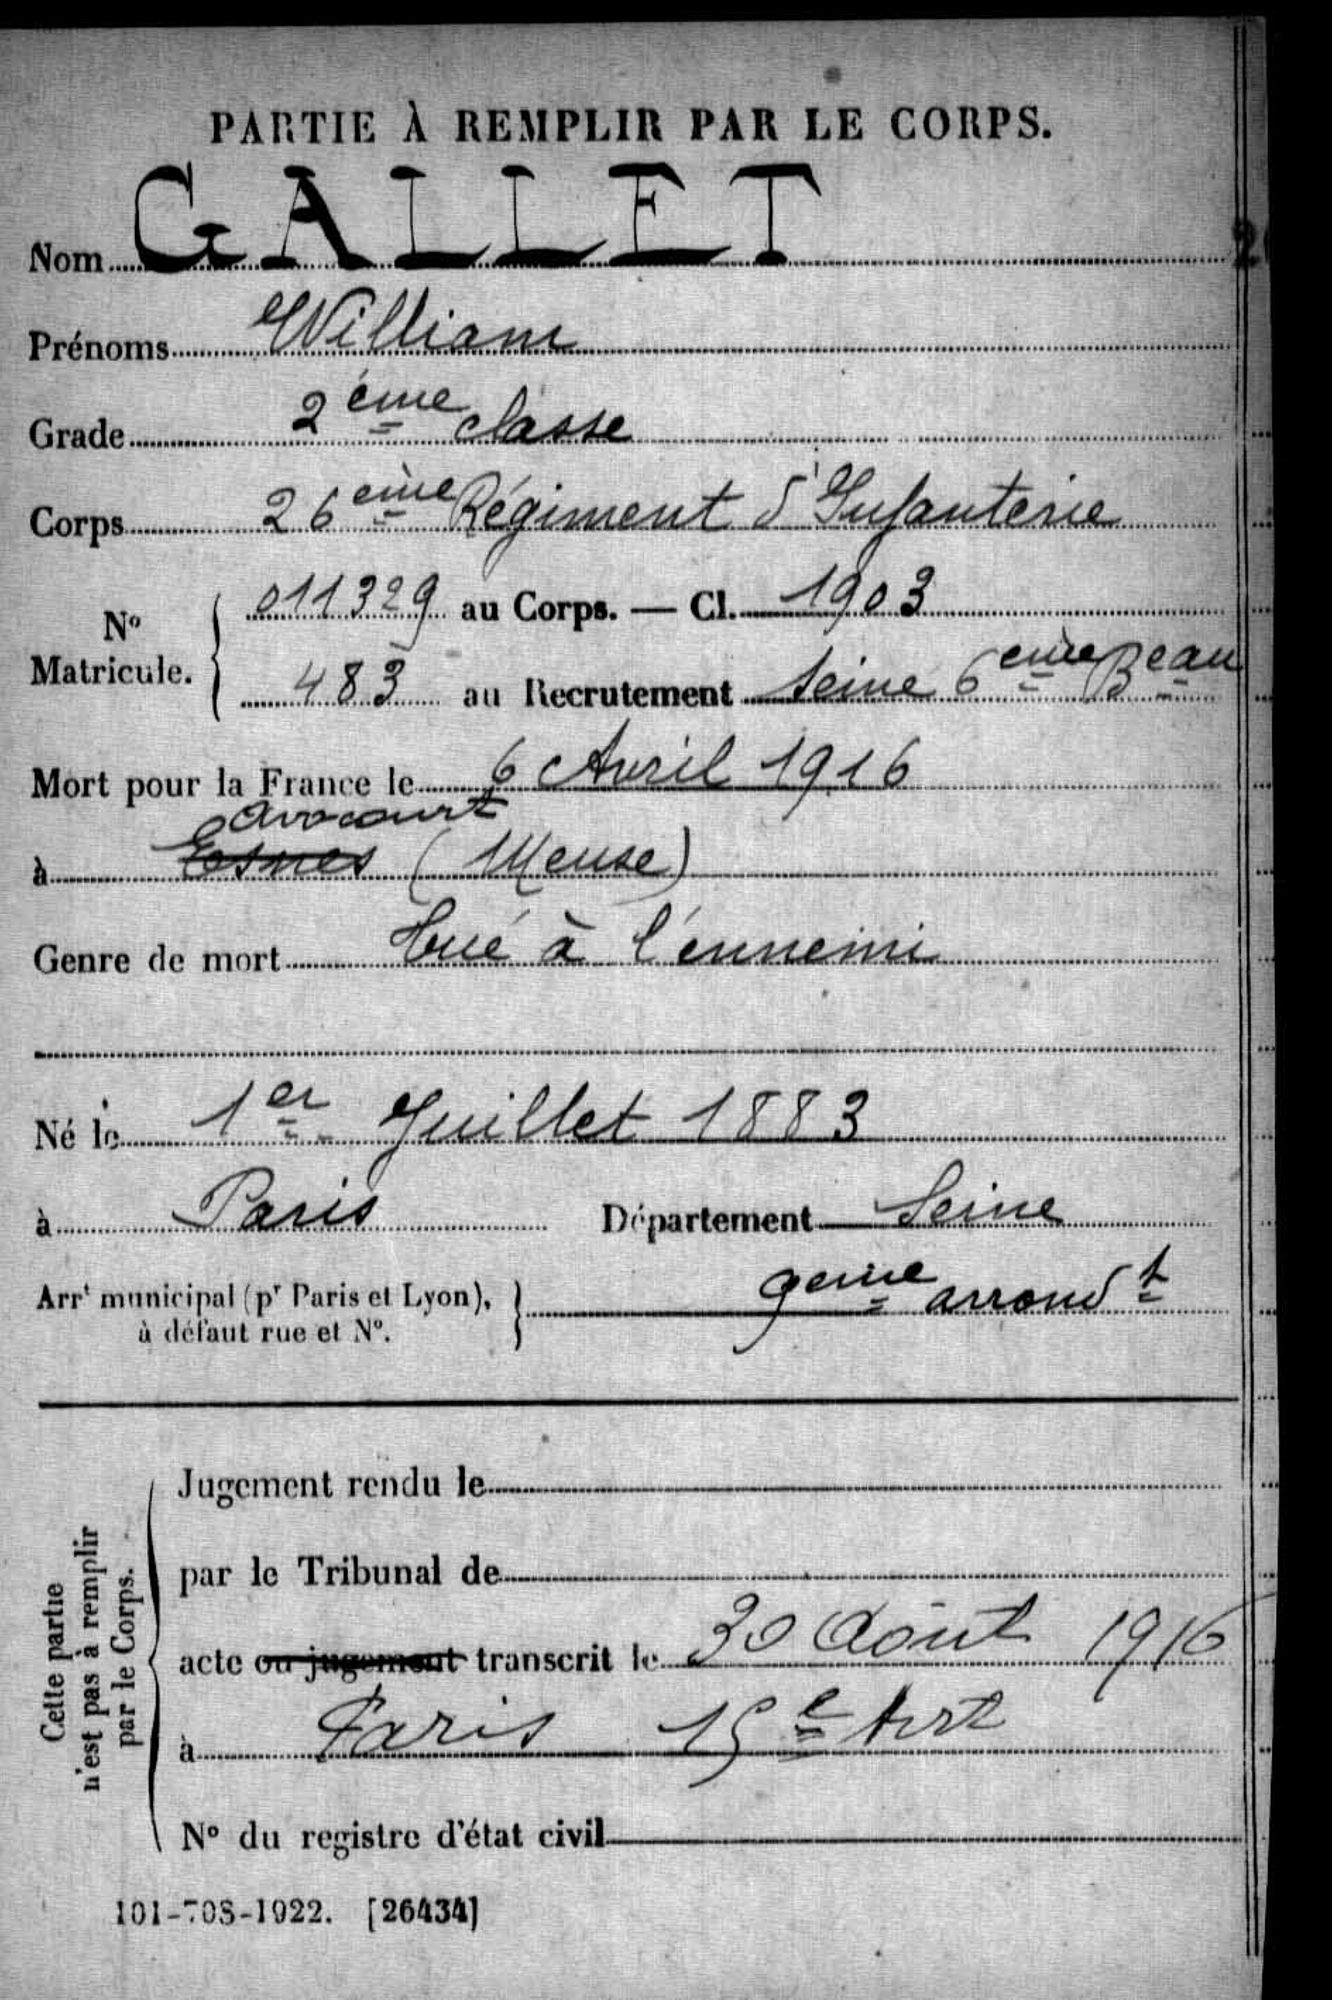 PARTIE À REMPLIR PAR LE CORPS.
Nom GALLET
Prénoms William
Grade 2ème classe
Corps 26ème Régiment d'Infanterie
N° Matricule. 011329 au Corps. — Cl. 1903
483 au Recrutement Seine 6ème Beau
Mort pour la France le 6 Avril 1916
Avocourt
à Esnes (Meuse)
Genre de mort tué à l'ennemi
Né le 1er Juillet 1883
à Paris Département Seine
Arrt municipal (pr Paris et Lyon), à défaut rue et N°. 9eme arrondt
Cette partie n'est pas à remplir par le Corps.
Jugement rendu le
par le Tribunal de
acte ou jugement transcrit le 30 Août 1916
à Paris 15e Arrt
N° du registre d'état civil
101-708-1922. [26434]